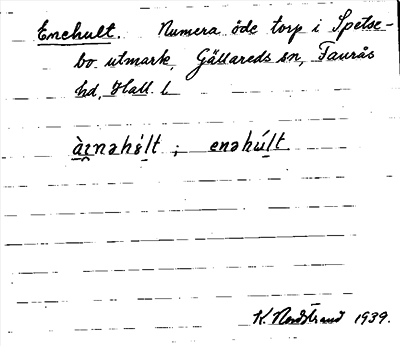 Enehult. Numera öde torp i Spetse-
bo utmark, Gällareds sn, Faurås
hd, Hall. l.
àɪnəhɵ́lt ; enəhúlt
K. Nordstrand 1939.